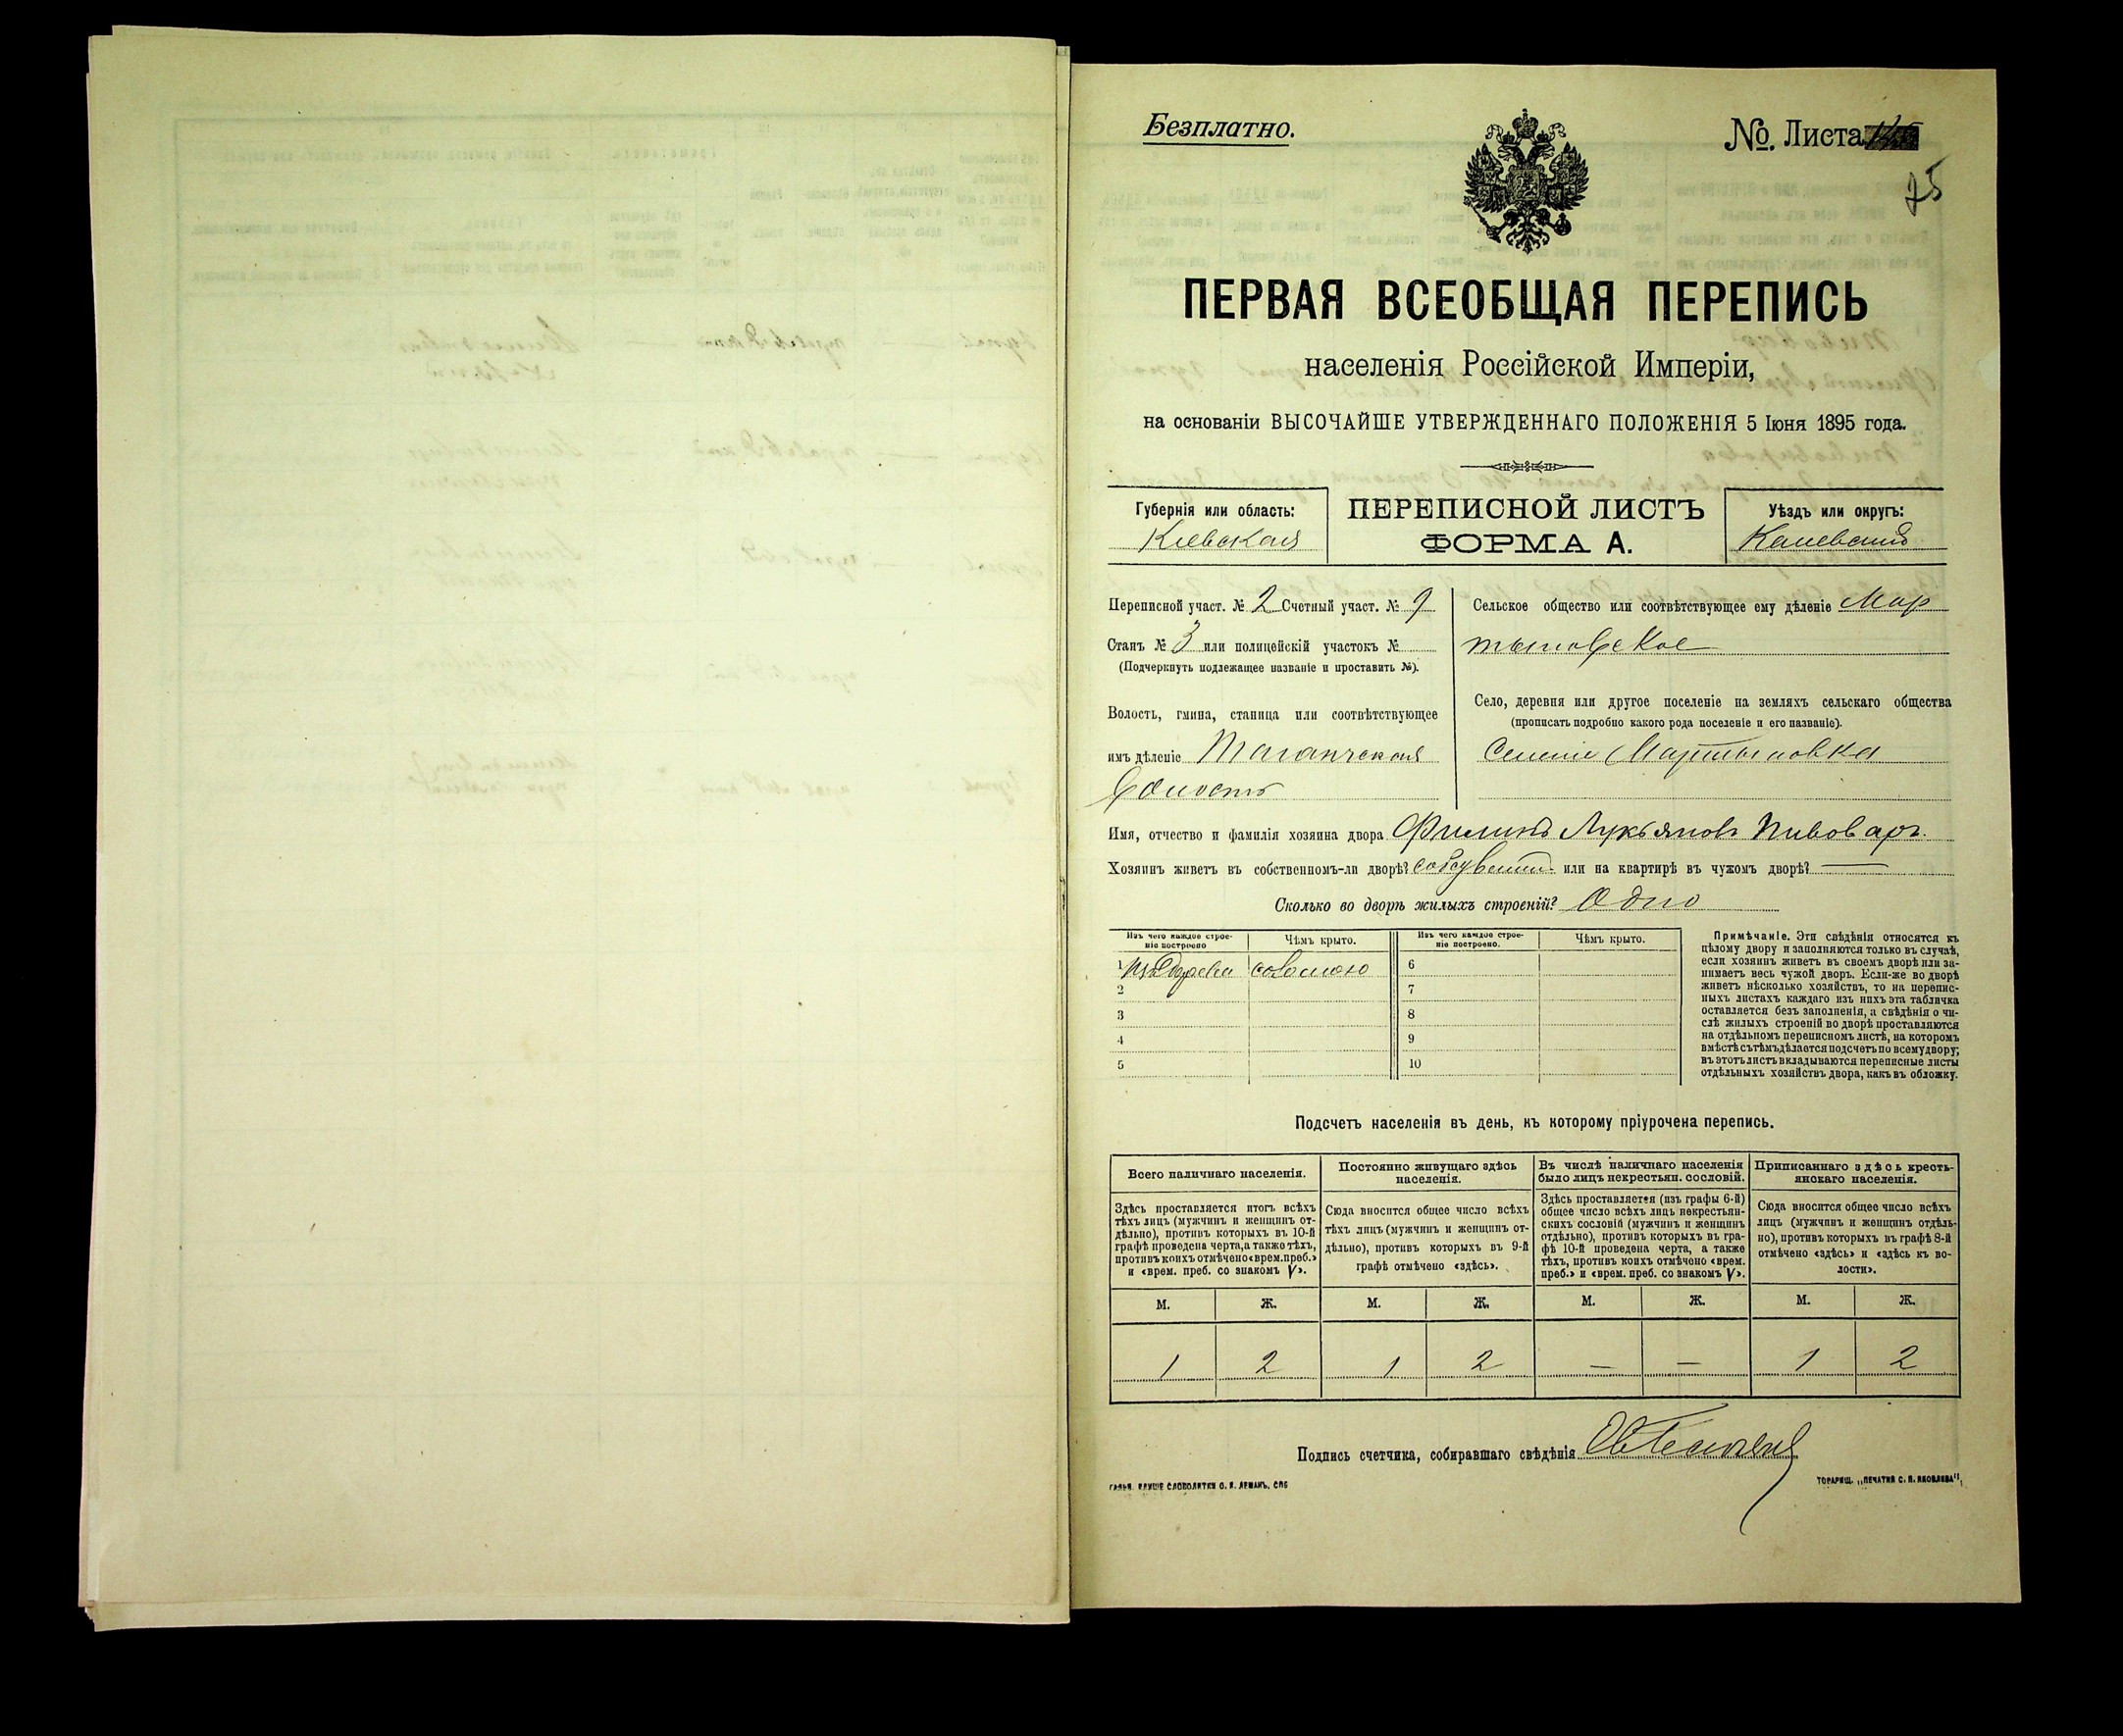 Безплатно.
№. Листа
75
ПЕРВАЯ ВСЕОБЩАЯ ПЕРЕПИСЬ
населенія Россійской Имперіи,
на основаніи ВЫСОЧАЙШЕ УТВЕРЖДЕННАГО ПОЛОЖЕНІЯ 5 Іюня 1895 года.
Губернія или область:
Кіевская
ПЕРЕПИСНОЙ ЛИСТЪ
ФОРМА А.
Уѣздъ или округъ:
Каневскій
Переписной участ. № 2 Счетный участ. № 9
Станъ № 3 или полицейскій участокъ №
(Подчеркнуть подлежащее названіе и проставить №).
Волость, гмина, станица или соотвѣтствующее
имъ дѣленіе Таганчская
волость
Сельское общество или соотвѣтствующее ему дѣленіе Мар
тыновское
Село, деревня или другое поселеніе на земляхъ сельскаго общества
(прописать подробно какого рода поселеніе и его названіе).
Селеніе Мартыновка
Имя, отчество и фамилія хозяина двора Филипъ Лукьяновъ Пивоваръ.
Хозяинъ живетъ въ собственномъ-ли дворѣ? или на квартирѣ въ чужомъ дворѣ? —
Сколько во дворѣ жилыхъ строеній? Одно
Изъ чего каждое строе-
ніе построено
Чѣмъ крыто.
Изъ чего каждое строе-
ніе построено.
Чѣмъ крыто.
1 изъ дерева соломою
2
3
4
5
6
7
8
9
10
Примѣчаніе. Эти свѣдѣнія относятся къ
цѣлому двору и заполняются только въ случаѣ,
если хозяинъ живетъ въ своемъ дворѣ или за-
нимаетъ весь чужой дворъ. Если-же во дворѣ
живетъ нѣсколько хозяйствъ, то на перепис-
ныхъ листахъ каждаго изъ нихъ эта табличка
оставляется безъ заполненія, а свѣдѣнія о чи-
слѣ жилыхъ строеній во дворѣ проставляются
на отдѣльномъ переписномъ листѣ, на которомъ
вмѣстѣ съ тѣмъ дѣлается подсчетъ по всему двору;
въ этотъ листъ вкладываются переписные листы
отдѣльныхъ хозяйствъ двора, какъ въ обложку.
Подсчетъ населенія въ день, къ которому пріурочена перепись.
Всего наличнаго населенія.
Здѣсь проставляется итогъ всѣхъ
тѣхъ лицъ (мужчинъ и женщинъ от-
дѣльно), противъ которыхъ въ 10-й
графѣ проведена черта, а также тѣхъ,
противъ коихъ отмѣчено «врем. преб.»
и «врем. преб. со знакомъ V».
Постоянно живущаго здѣсь
населенія.
Сюда вносится общее число всѣхъ
тѣхъ лицъ (мужчинъ и женщинъ от-
дѣльно), противъ которыхъ въ 9-й
графѣ отмѣчено «здѣсь».
Въ числѣ наличнаго населенія
было лицъ некрестьян. сословій.
Здѣсь проставляется (изъ графы 6-й)
общее число всѣхъ лицъ некрестьян-
скихъ сословій (мужчинъ и женщинъ
отдѣльно), противъ которыхъ въ гра-
фѣ 10-й проведена черта, а также
тѣхъ, противъ коихъ отмѣчено «врем.
преб.» и «врем. преб. со знакомъ V».
Приписаннаго здѣсь кресть-
янскаго населенія.
Сюда вносится общее число всѣхъ
лицъ (мужчинъ и женщинъ отдѣль-
но), противъ которыхъ въ графѣ 8-й
отмѣчено «здѣсь» и «здѣсь къ во-
лости».
М. Ж. М. Ж. М. Ж. М. Ж.
1 2 1 2 — — 1 2
Подпись счетчика, собиравшаго свѣдѣнія
ТОВАРИЩ. „ПЕЧАТНЯ С. П. ЯКОВЛЕВА“